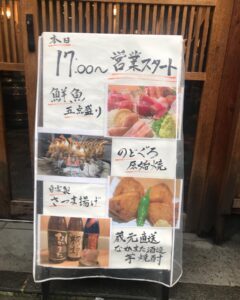 本日
17:00〜営業スタート
鮮魚
五点盛り
のどぐろ
原始焼
自家製
さつま揚げ
蔵元直送
なかまた酒造
芋焼酎